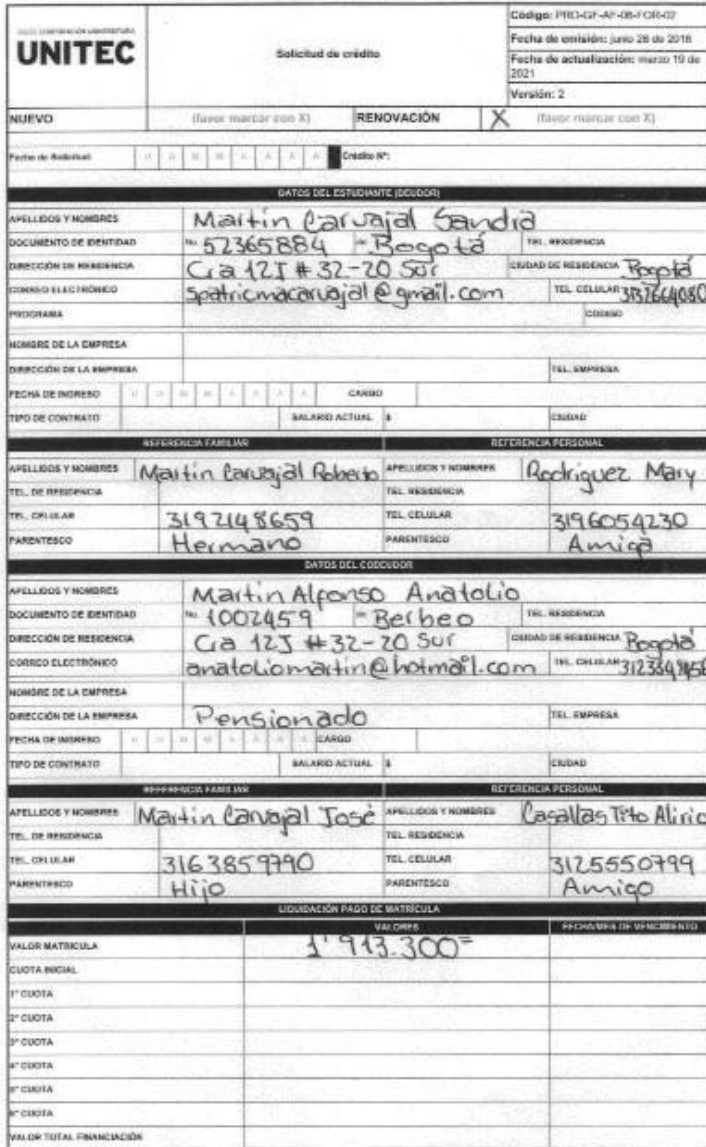 UNITEC
Solicitud de crédito
Código: PRO-GF-AF-06-FOR-02
Fecha de emisión: junio 28 de 2016
Fecha de actualización: marzo 19 de 2021
Versión: 2
NUEVO (favor marcar con X) RENOVACIÓN X (favor marcar con X)
Fecha de Solicitud: D D M M A A A A Crédito N°:
DATOS DEL ESTUDIANTE (DEUDOR)
APELLIDOS Y NOMBRES Martin Carvajal Sandra
DOCUMENTO DE IDENTIDAD No. 52365884 de Bogotá TEL. RESIDENCIA
DIRECCIÓN DE RESIDENCIA Cra 12J # 32-20 Sur CIUDAD DE RESIDENCIA Bogotá
CORREO ELECTRÓNICO spatricmacarvajal@gmail.com TEL. CELULAR 3132664080
PROGRAMA CODIGO
NOMBRE DE LA EMPRESA
DIRECCIÓN DE LA EMPRESA TEL. EMPRESA
FECHA DE INGRESO D D M M A A A A CARGO
TIPO DE CONTRATO SALARIO ACTUAL $ CIUDAD
REFERENCIA FAMILIAR REFERENCIA PERSONAL
APELLIDOS Y NOMBRES Martin Carvajal Roberto APELLIDOS Y NOMBRES Rodriguez Mary
TEL. DE RESIDENCIA TEL. RESIDENCIA
TEL. CELULAR 3192148659 TEL. CELULAR 3196054230
PARENTESCO Hermano PARENTESCO Amiga
DATOS DEL CODEUDOR
APELLIDOS Y NOMBRES Martin Alfonso Anatolio
DOCUMENTO DE IDENTIDAD No. 1002459 de Berbeo TEL. RESIDENCIA
DIRECCIÓN DE RESIDENCIA Cra 12J #32-20 Sur CIUDAD DE RESIDENCIA Bogotá
CORREO ELECTRÓNICO anatoliomartin@hotmail.com TEL. CELULAR
NOMBRE DE LA EMPRESA
DIRECCIÓN DE LA EMPRESA Pensionado TEL. EMPRESA
FECHA DE INGRESO D D M M A A A A CARGO
TIPO DE CONTRATO SALARIO ACTUAL $ CIUDAD
REFERENCIA FAMILIAR REFERENCIA PERSONAL
APELLIDOS Y NOMBRES Martin Carvajal José APELLIDOS Y NOMBRES Casallas Tito Alirio
TEL. DE RESIDENCIA TEL. RESIDENCIA
TEL. CELULAR 3163859790 TEL. CELULAR 3125550799
PARENTESCO Hijo PARENTESCO Amigo
LIQUIDACIÓN PAGO DE MATRÍCULA
VALORES FECHA/MES DE VENCIMIENTO
VALOR MATRICULA 1'913.300=
CUOTA INICIAL
1° CUOTA
2° CUOTA
3° CUOTA
4° CUOTA
5° CUOTA
6° CUOTA
VALOR TOTAL FINANCIACIÓN